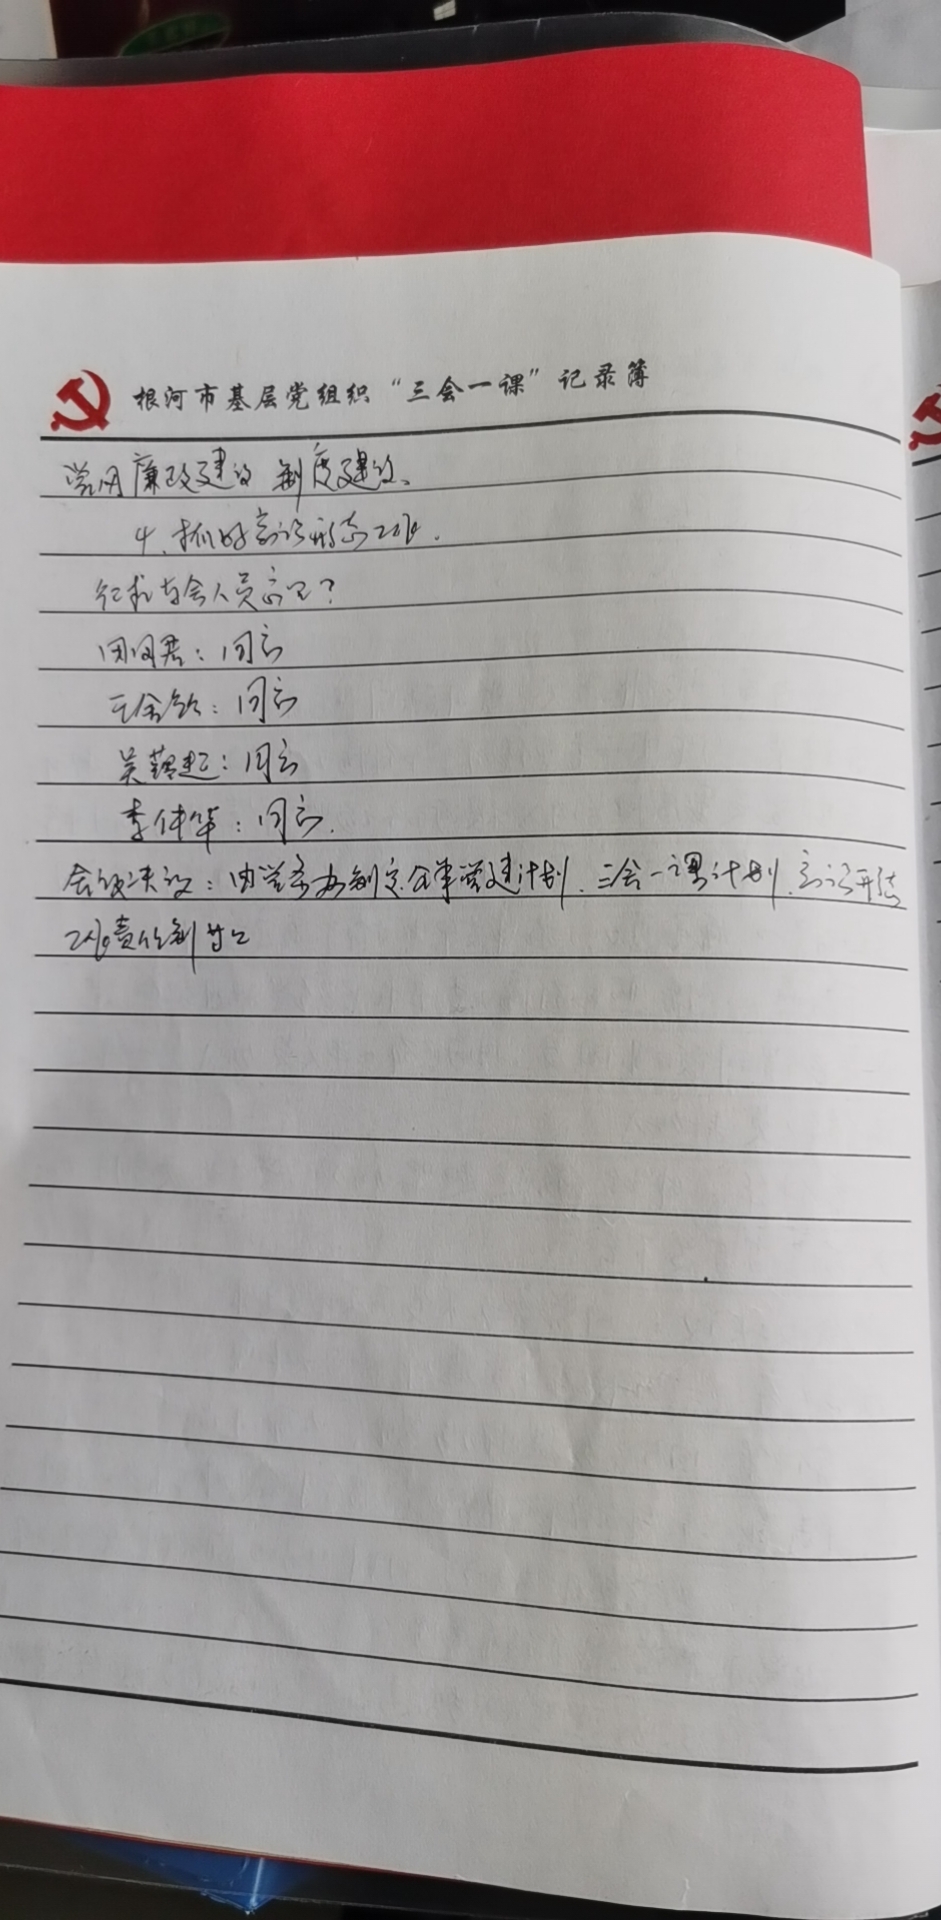 根河市基层党组织“三会一课”记录簿
党风廉政建设 制度建设、
4、抓好意识形态工作.
征求与会人员意见?
同意
同意
吴蕴起:同意
李伟华:同意.
会议决议:由党办制定全年党建计划、三会一课计划、意识形态
工作责任制